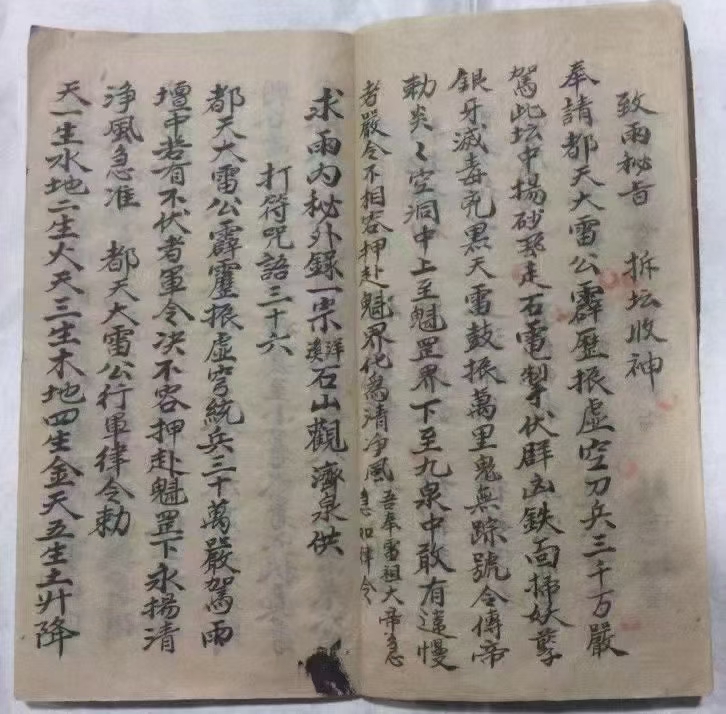 致雨秘旨　拆坛收神
奉請都天大雷公霹歷振虚空刀兵三千万嚴
駕此坛中揚砂永走石電掣伏群凶鉄面掃妖孽
銀牙滅毒死黒天雷鼓振萬里鬼無踪號令傳帝
勅炎〻空洞中上至魁罡界下至九泉中敢有違慢
者嚴令不相容押赴魁界化爲清净風吾奉雷祖大帝急急如律令
求雨内秘外錄一宗　石山觀濟泉供
打符咒語三十六
都天大雷公霹靂振虚穹統兵三十萬嚴駕雨
壇中若有不伏者軍令决不容押赴魁罡下永揚清
淨風急准　都天大雷公行軍律令勅
天一生水地二生火天三生木地四生金天五生土升降